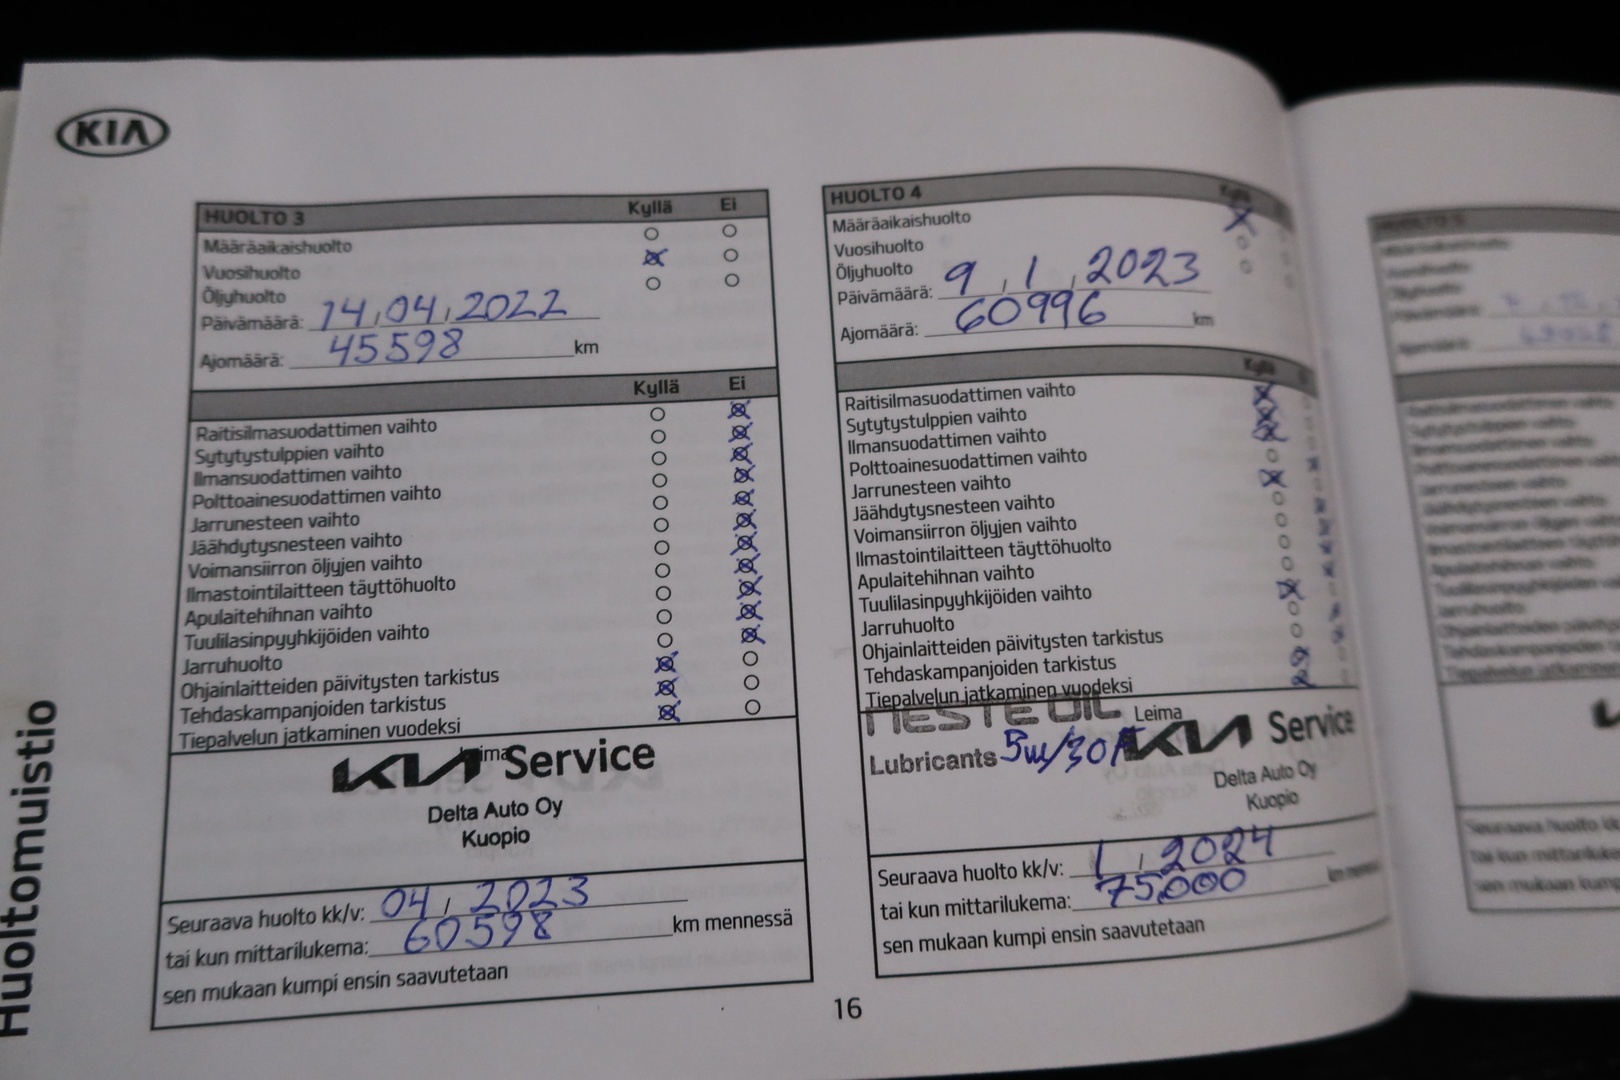 KIA
Huoltomuistio
HUOLTO 3 Kyllä Ei
Määräaikaishuolto
Vuosihuolto
Öljyhuolto
Päivämäärä: 14,04,2022
Ajomäärä: 45598 km
Kyllä Ei
Raitisilmasuodattimen vaihto
Sytytystulppien vaihto
Ilmansuodattimen vaihto
Polttoainesuodattimen vaihto
Jarrunesteen vaihto
Jäähdytysnesteen vaihto
Voimansiirron öljyjen vaihto
Ilmastointilaitteen täyttöhuolto
Apulaitehihnan vaihto
Tuulilasinpyyhkijöiden vaihto
Jarruhuolto
Ohjainlaitteiden päivitysten tarkistus
Tehdaskampanjoiden tarkistus
Tiepalvelun jatkaminen vuodeksi
Leima
KIA Service
Delta Auto Oy
Kuopio
Seuraava huolto kk/v: 04, 2023
tai kun mittarilukema: 60598 km mennessä
sen mukaan kumpi ensin saavutetaan
HUOLTO 4 Kyllä
Määräaikaishuolto
Vuosihuolto
Öljyhuolto
Päivämäärä: 9,1,2023
Ajomäärä: 60996 km
Kyllä
Raitisilmasuodattimen vaihto
Sytytystulppien vaihto
Ilmansuodattimen vaihto
Polttoainesuodattimen vaihto
Jarrunesteen vaihto
Jäähdytysnesteen vaihto
Voimansiirron öljyjen vaihto
Ilmastointilaitteen täyttöhuolto
Apulaitehihnan vaihto
Tuulilasinpyyhkijöiden vaihto
Jarruhuolto
Ohjainlaitteiden päivitysten tarkistus
Tehdaskampanjoiden tarkistus
Tiepalvelun jatkaminen vuodeksi
NESTE OIL Leima
Lubricants 5W/30 KIA Service
Delta Auto Oy
Kuopio
Seuraava huolto kk/v: 1, 2024
tai kun mittarilukema: 75000 km mennessä
sen mukaan kumpi ensin saavutetaan
16